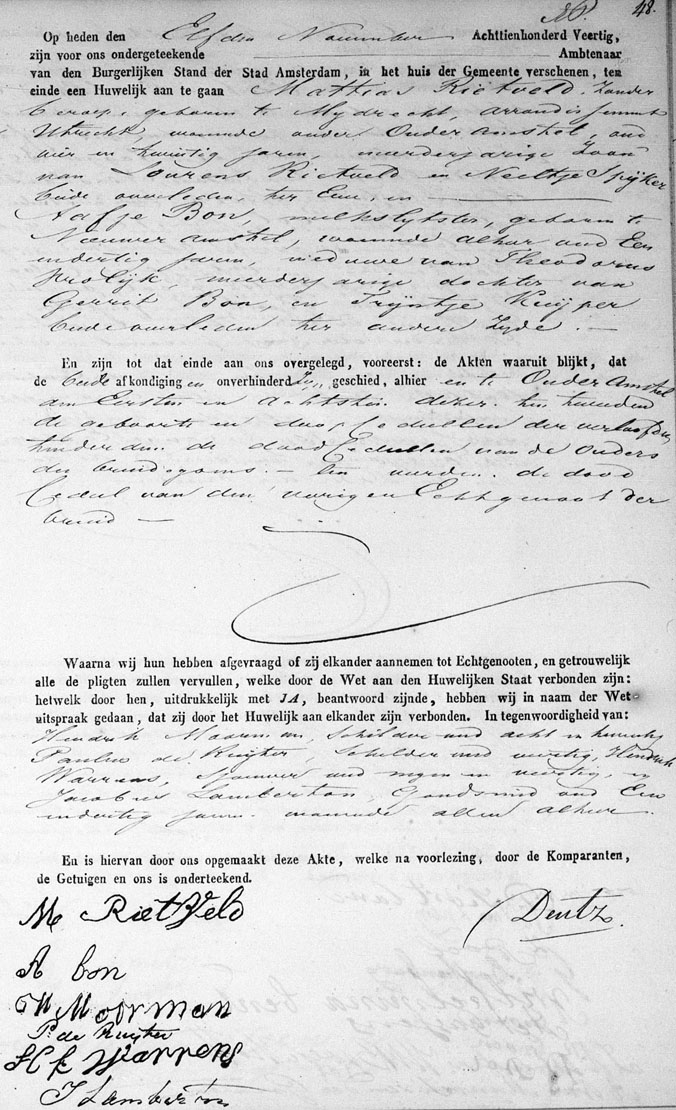 48.
Op heden den Elfden November Achttienhonderd Veertig,
zijn voor ons ondergeteekende Ambtenaar
van den Burgerlijken Stand der Stad Amsterdam, in het huis der Gemeente verschenen, ten
einde een Huwelijk aan te gaan Mattias Rietveld, zonder
beroep, geboren te Mydrecht, arrondissement
Utrecht, woonende onder Ouder Amstel, oud
vier en twintig jaren, meerderjarige Zoon
van Lourens Rietveld en Neeltje Spijker
beide overleden, ter Eene, en
Aafje Bon, melkslijtster, geboren te
Nieuwer Amstel, woonende alhier oud Een
en dertig jaren, weduwe van Theodorus
Frolijk, meerderjarige dochter van
Gerrit Bon, en Trijntje Kuijper
beide overleden ter andere zyde.
En zijn tot dat einde aan ons overgelegd, vooreerst: de Akten waaruit blijkt, dat
de beide afkondigingen onverhinderd zijn geschied, alhier en te Ouder Amstel
den Eersten en Achtsten dezer. ten tweeden
de geboorte en doop Cedullen der verloofden
ten derden de dood Cedullen van de Ouders
des bruidegoms. – ten vierden de dood
Cedul van den vorigen Echtgenoot der
bruid –
Waarna wij hun hebben afgevraagd of zij elkander aannemen tot Echtgenooten, en getrouwelijk
alle de pligten zullen vervullen, welke door de Wet aan den Huwelijken Staat verbonden zijn:
hetwelk door hen, uitdrukkelijk met JA, beantwoord zijnde, hebben wij in naam der Wet
uitspraak gedaan, dat zij door het Huwelijk aan elkander zijn verbonden. In tegenwoordigheid van:
Hendrik Moorman, Schilder oud acht en twintig
Paulus de Ruijter, Schilder oud veertig, Hendrik
Warrens, oud negen en veertig, en
Jacobus Lamberton, Goudsmid oud Een
en dertig jaren. woonende allen alhier.
En is hiervan door ons opgemaakt deze Akte, welke na voorlezing, door de Komparanten,
de Getuigen en ons is onderteekend.
M Rietveld
Dentz
A bon
H Moorman
P. de Ruyter
H F Warrens
J Lamberton